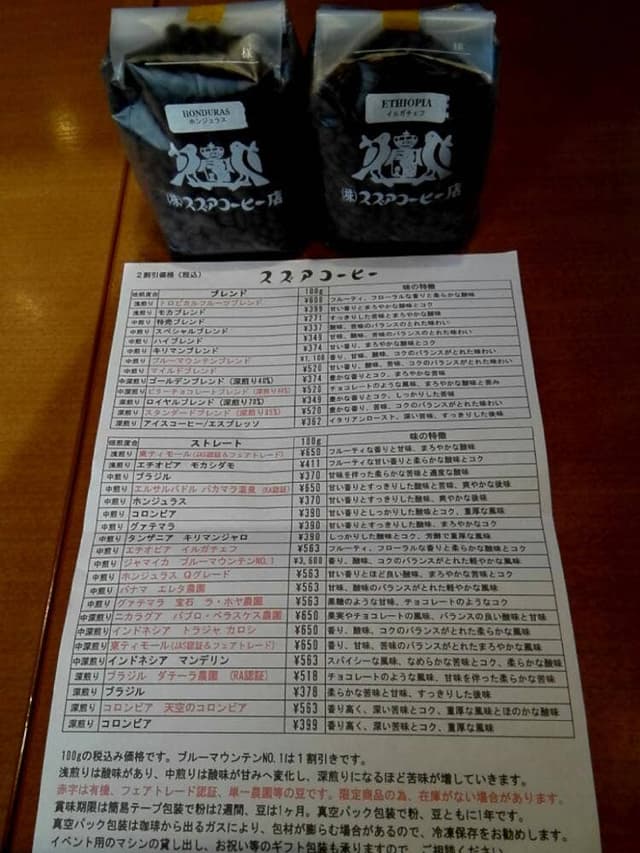 様
HONDURAS
ホンジュラス
(株)スズアコーヒー店
様
ETHIOPIA
イルガチェフ
(株)スズアコーヒー店
2割引価格(税込) スズアコーヒー
焙煎度合 ブレンド 100g 味の特徴
浅煎り トロピカルフルーツブレンド ¥600 フルーティ、フローラルな香りと柔らかな酸味
浅煎り モカブレンド ¥399 甘い香りとまろやかな酸味とコク
中煎り 特売ブレンド ¥271 すっきりした苦味とまろやかな酸味
中煎り スペシャルブレンド ¥337 酸味、苦味のバランスのとれた味わい
中煎り ハイブレンド ¥349 甘味、酸味、苦味のバランスのとれた味わい
中煎り キリマンブレンド ¥374 甘い香り、まろやかな酸味とコク
中煎り ブルーマウンテンブレンド ¥1,108 香り、甘味、酸味、コクのバランスがとれた味わい
中煎り マイルドブレンド ¥520 甘い香りと柔らかな苦味とコク
中深煎り ゴールデンブレンド (深煎り40%) ¥374 豊かな香りとコク、まろやかな苦味
中深煎り ビターチョコレートブレンド (深煎り60%) ¥520 チョコレートのような風味、まろやかな酸味と苦み
深煎り ロイヤルブレンド (深煎り70%) ¥349 豊かな香りとコク、しっかりした苦味
深煎り スタンダードブレンド (深煎り85%) ¥520 豊かな香り、苦味、コクのバランスがとれた味わい
深煎り アイスコーヒー/エスプレッソ ¥362 イタリアンロースト、深い苦味、すっきりした後味
焙煎度合 ストレート 100g 味の特徴
浅煎り 東ティモール(JAS認証&フェアトレード) ¥650 フルーティな香りと甘味、まろやかな酸味
浅煎り エチオピア モカシダモ ¥411 フルーティな甘い香りと柔らかな酸味とコク
中煎り ブラジル ¥370 甘味を伴った柔らかな苦味と適度な酸味
中煎り エルサルバドル パカマラ温泉 (RA認証) ¥650 甘い香りとすっきりした酸味と苦味、爽やかな後味
中煎り ホンジュラス ¥370 甘い香りとすっきりした酸味、爽やかな後味
中煎り コロンビア ¥390 甘い香りとしっかりした酸味とコク、重厚な風味
中煎り グァテマラ ¥390 甘い香りとすっきりした酸味、まろやかなコク
中煎り タンザニア キリマンジャロ ¥390 しっかりした酸味とコク、芳醇で重厚な風味
中煎り エチオピア イルガチェフ ¥563 フルーティ、フローラルな香りと柔らかな酸味とコク
中煎り ジャマイカ ブルーマウンテンNO.1 ¥3,600 香り、酸味、コクのバランスがとれた軽やかな風味
中煎り ホンジュラス Qグレード ¥563 甘い香りとほど良い酸味、まろやかな苦味とコク
中煎り パナマ エレタ農園 ¥563 甘味、酸味のバランスがとれた軽やかな風味
中煎り グァテマラ 宝石 ラ・ホヤ農園 ¥563 黒糖のような甘味、チョコレートのようなコク
中深煎り ニカラグア パブロ・ベラスケス農園 ¥650 果実やチョコレートの風味、バランスの良い酸味と甘味
中深煎り インドネシア トラジャ カロシ ¥650 香り、酸味、コクのバランスがとれた柔らかな風味
中深煎り 東ティモール(JAS認証&フェアトレード) ¥650 香り、甘味、苦味のバランスがとれたまろやかな風味
中深煎り インドネシア マンデリン ¥563 スパイシーな風味、なめらかな苦味とコク、柔らかな酸味
深煎り ブラジル ダテーラ農園 (RA認証) ¥518 チョコレートのような風味、甘味を伴った柔らかな苦味
深煎り ブラジル ¥378 柔らかな苦味と甘味、すっきりした後味
深煎り コロンビア 天空のコロンビア ¥563 香り高く、深い苦味とコク、重厚な風味とほのかな酸味
深煎り コロンビア ¥399 香り高く、深い苦味とコク、重厚な風味
100gの税込み価格です。ブルーマウンテンNO.1は1割引きです。
浅煎りは酸味があり、中煎りは酸味が甘みへ変化し、深煎りになるほど苦味が増していきます。
赤字は有機、フェアトレード認証、単一農園等の豆です。限定商品の為、在庫がない場合があります。
賞味期限は簡易テープ包装で粉は2週間、豆は1ヶ月。真空パック包装で粉、豆ともに1年です。
真空パック包装は珈琲から出るガスにより、包材が膨らむ場合があるので、冷凍保存をお勧めします。
イベント用のマシンの貸し出し、お祝い等のギフト包装も承りますので、ご相談ください。